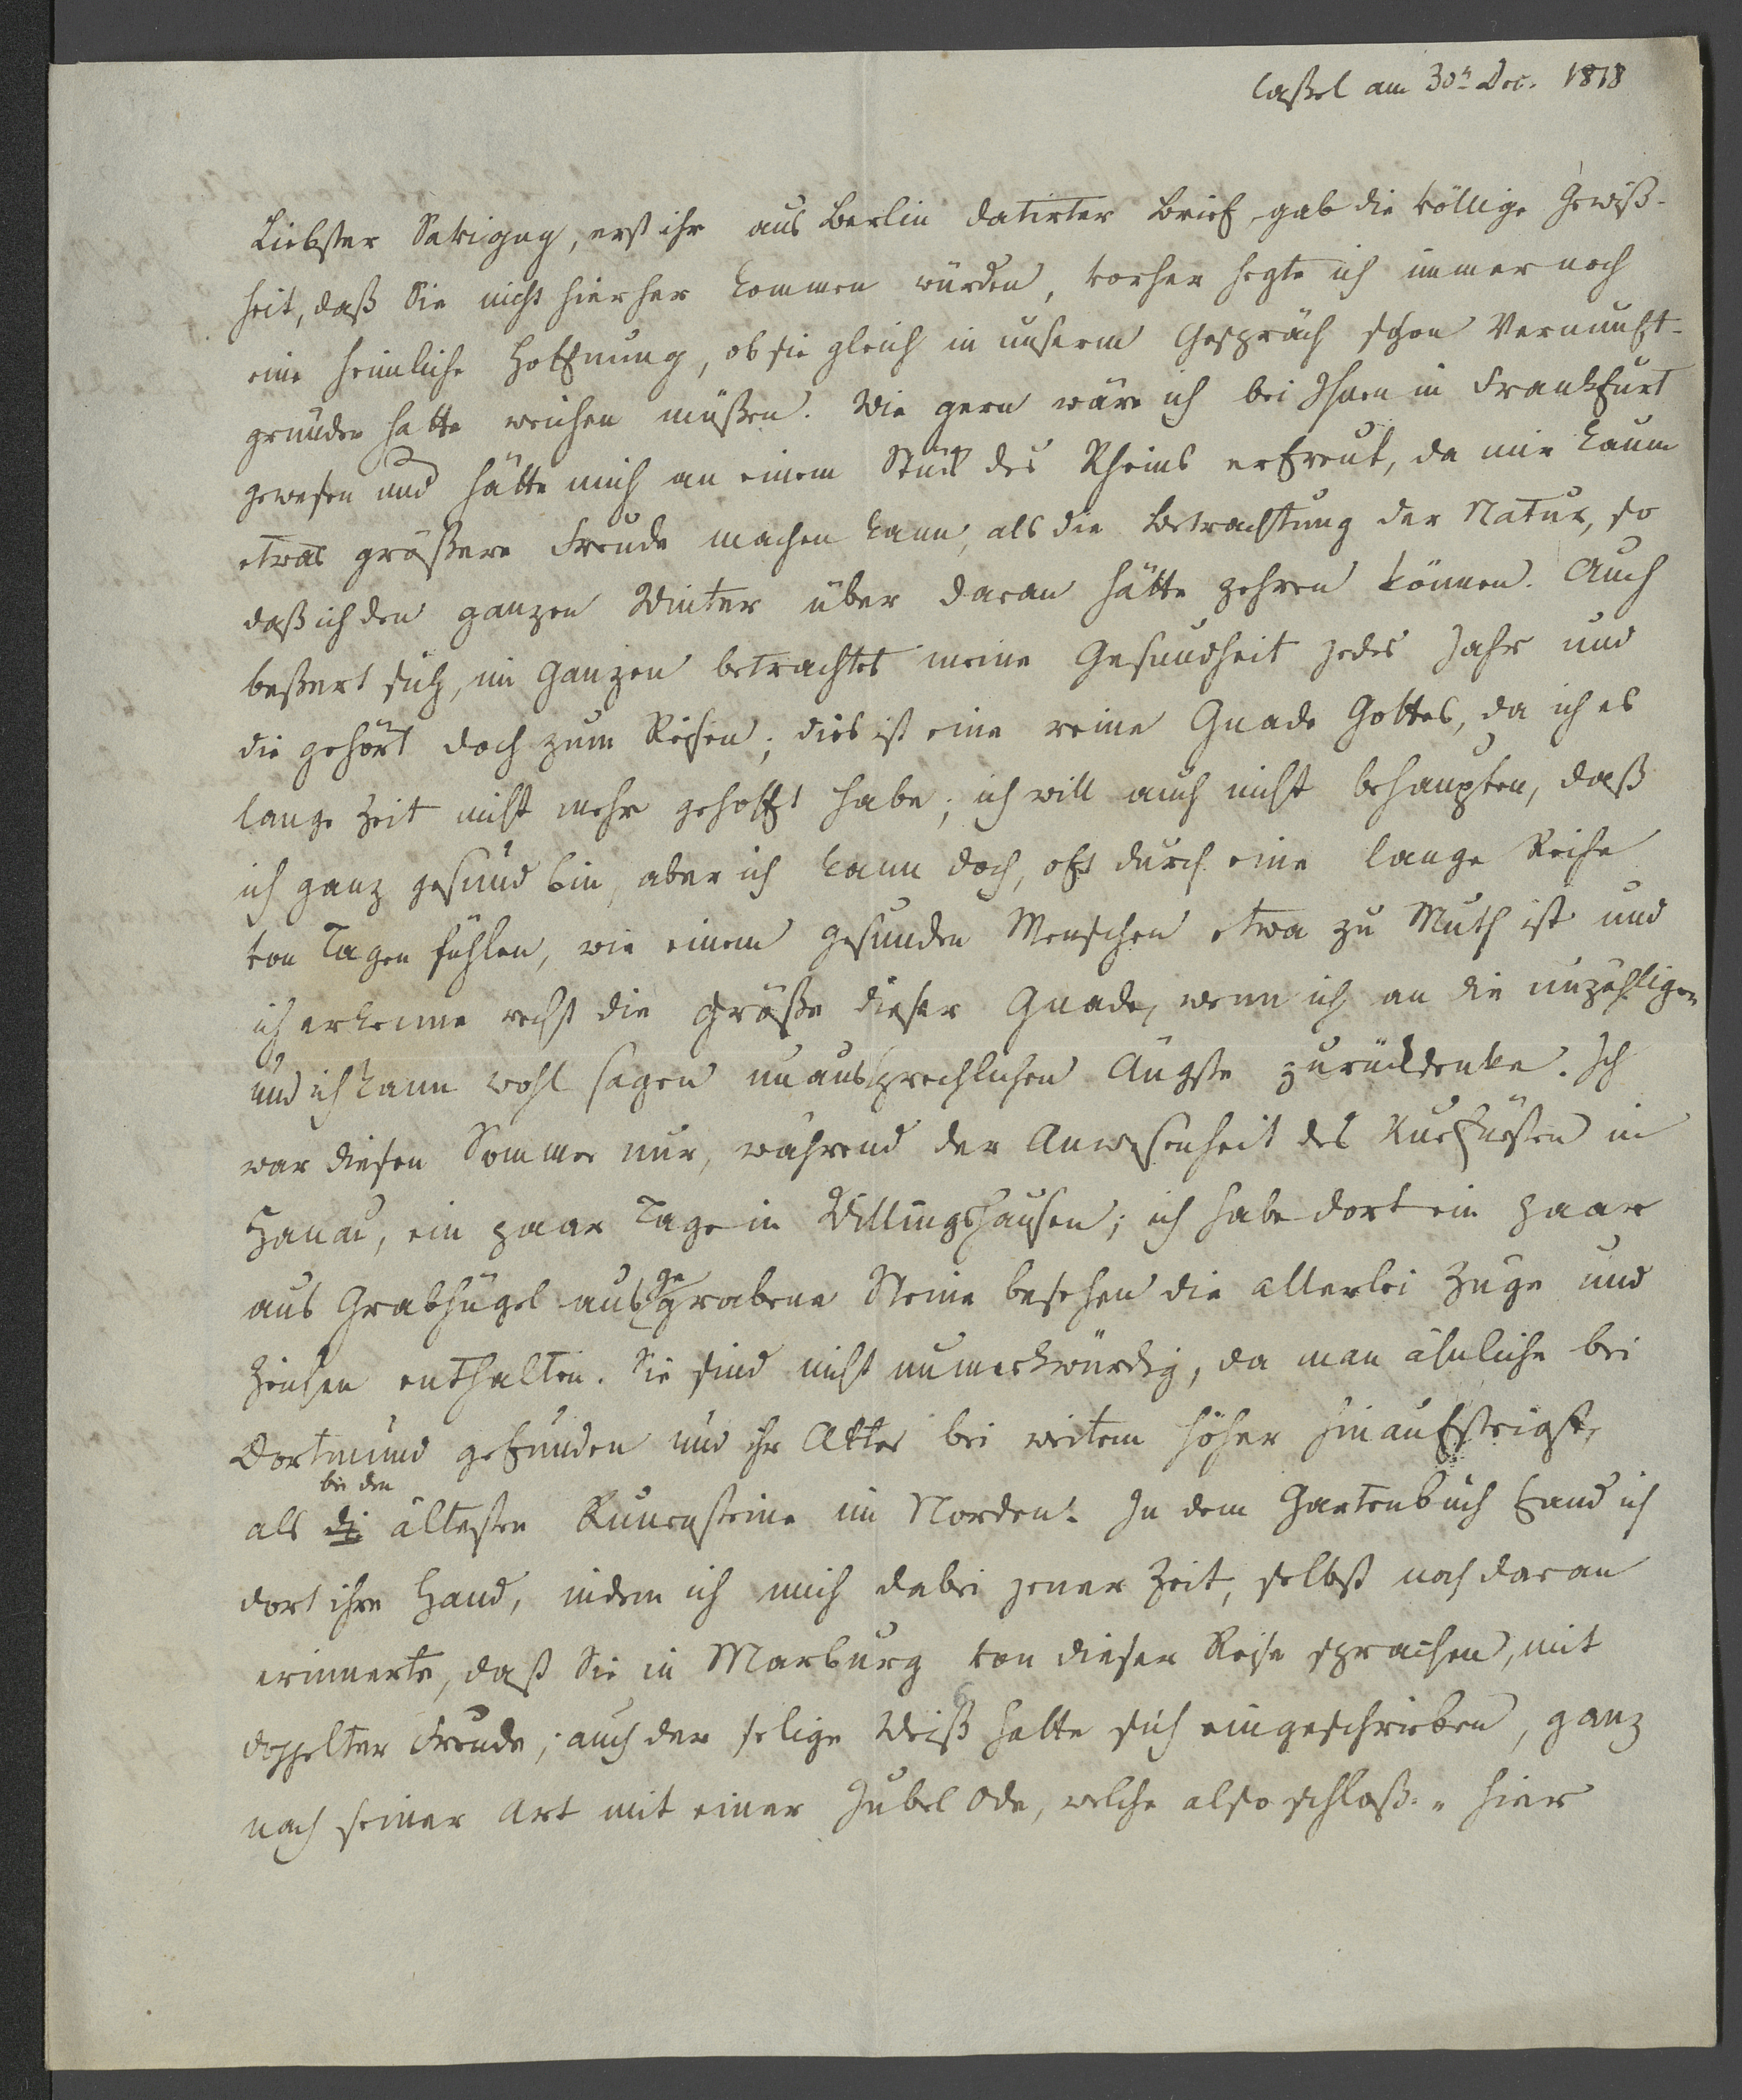 Caßel am 30<sup>n</sup> Dec. 1818
Liebster Savigny, erst ihr aus Berlin datirter Brief, gab die völlige Gewiß-
heit, daß Sie nicht hierher kommen würden, vorher hegte ich immer noch
eine heimliche Hoffnung, ob sie gleich in unserm Gespräch schon Vernunft-
gründen hatte weichen müßen. Wie gern wäre ich bei Ihnen in Frankfurt
gewesen und hätte mich an einem Stück des Rheins erfreut, da mir kaum
etwas größere Freude machen kann, als die Betrachtung der Natur, so
daß ich den ganzen Winter über daran hätte zehren können. Auch
beßert sich, im Ganzen betrachtet meine Gesundheit jedes Jahr und
die gehört doch zum Reisen; dies ist eine reine Gnade Gottes, da ich es
lange Zeit nicht mehr gehofft habe; ich will auch nicht behaupten, daß
ich ganz gesund bin, aber ich kann doch, oft durch eine lange Reihe
von Tagen fühlen, wie einem gesunden Menschen etwa zu Muth ist und
ich erkenne recht die Größe dieser Gnade, wenn ich an die unzähligen
und ich kann wohl sagen unaussprechlichen Ängste zurückdenke. Ich
war diesen Sommer nur, während der Anwesenheit des Kurfürsten in
Hanau, ein paar Tage in Willingshausen; ich habe dort ein paar
aus Grabhügel ausgegrabene Steine besehen die allerlei Züge und
Zeichen enthalten. Sie sind nicht unmerkwürdig, da man ähnliche bei
Dortmund gefunden und ihr Alter bei weitem höher hinaufsteigt,
als bei den ältesten Runensteine im Norden. In dem Gartenbuch fand ich
dort ihre Hand, indem ich mich dabei jener Zeit, selbst noch daran
erinnerte, daß Sie in Marburg von dieser Reise sprachen, mit
doppelter Freude; auch der selige Weiß hatte sich eingeschrieben, ganz
nach seiner Art mit einer Jubel Ode, welche also schloß: „hier